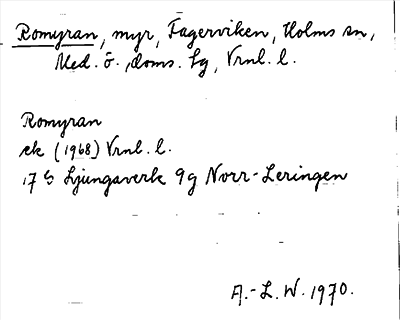 Romyran, myr, Fagerviken, Holms sn,
Med. ö. doms. lg, Vrnl. l.
Romyran
ek (1968) Vrnl. l.
17 G Ljungaverk 9g Norr-Leringen
A.-L. W. 1970.